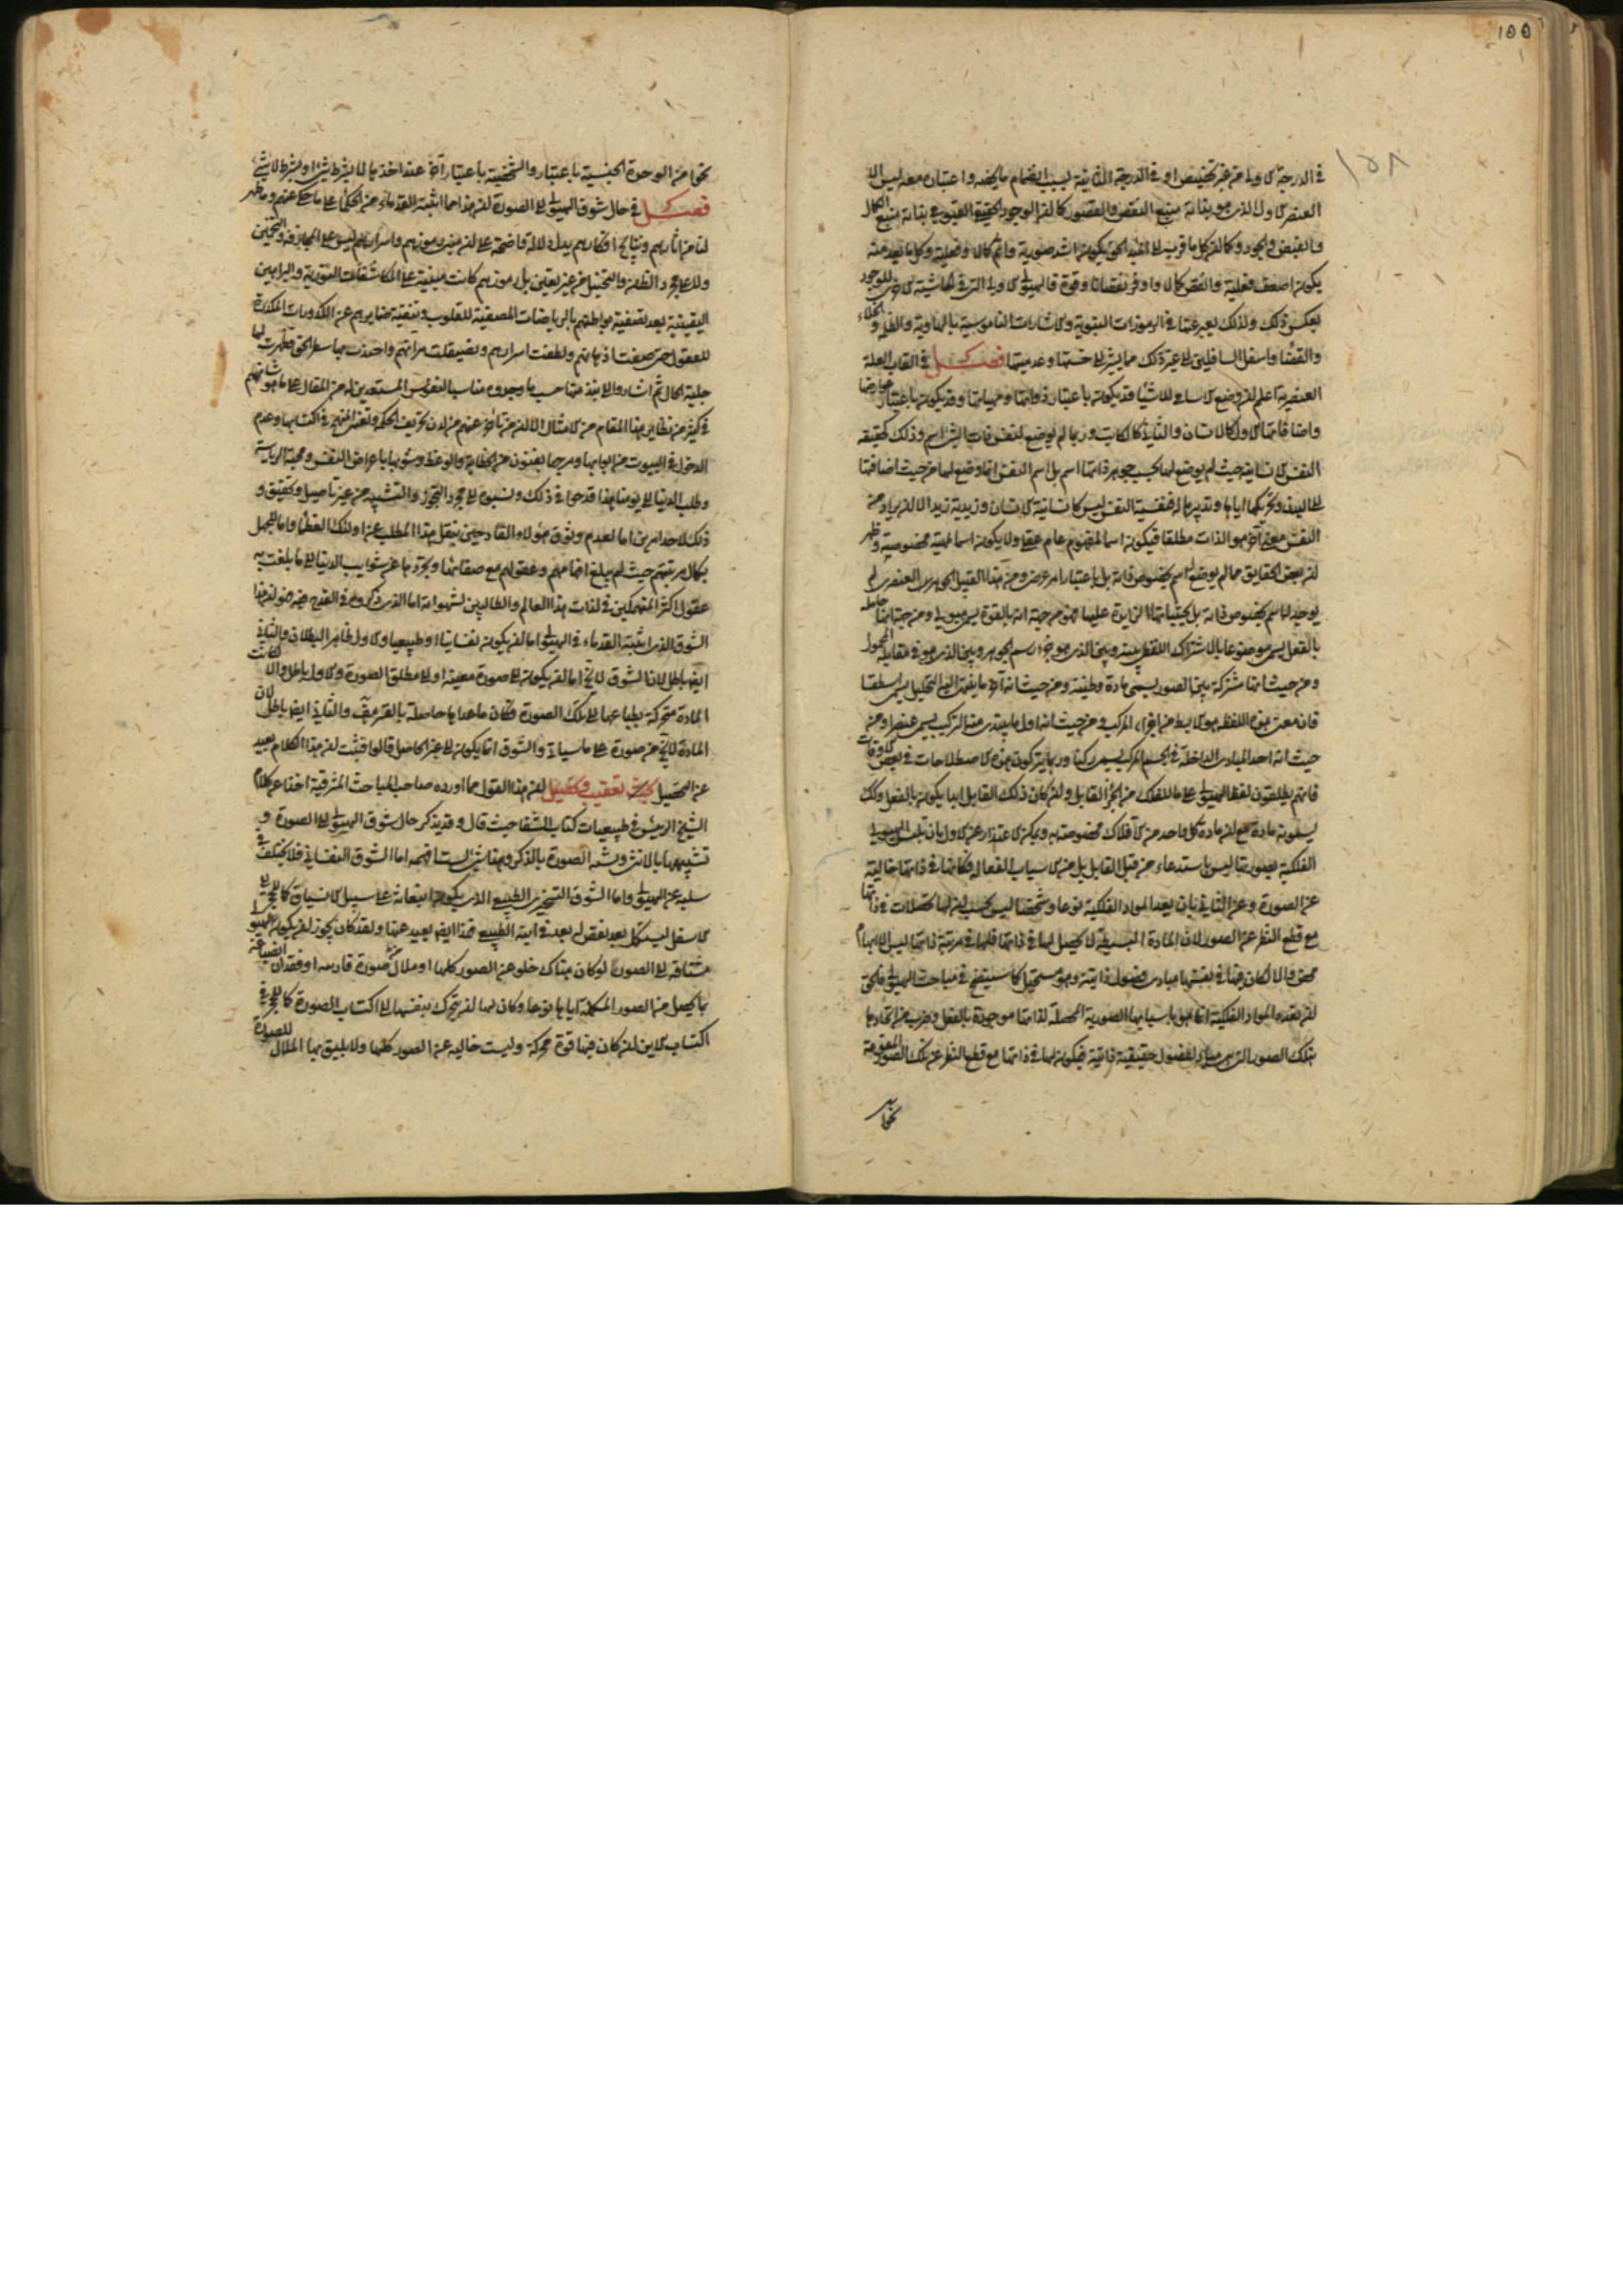 ١٥٥
١٥٨
في الدرجة الاولى من غير تخصيص او في الدرجة الثانية بسبب انضمام ما يخصه واعتباره معه ليس الا
العنصر الاول الذي هو بذاته منبع النقص والقصور كما ان الوجود الحق القيومي بذاته منبع الكمال
والفيض والجود وكما ان كل ما قرب الى المبدء الحق يكون اشد صورية واتم كمالا وفعلية وكل ما بعد منه
يكون اضعف فعلية وانقص كمالا واوفر نقصانا وقوة فالهيولى الاولى التي في حاشية الاخرى للوجود
بعكس ذلك ولذلك يعبر عنها في الرموزات النبوية والاشارات الناموسية بالهاوية والظلمة والخلاء
والفضا واسفل السافلين الى غير ذلك مما يشير الى خستها وعدميتها فصل في القاب العلة
العنصرية اعلم ان وضع الاسامي للاشيا قد يكون باعتبار ذواتها ومهياتها وقد يكون باعتبار عوارضها
واضافاتها الاول كالانسان والثاني كالكاتب وربما لم يوضع لنفس ذات الشي اسم وذلك كحقيقة
النفس الانسانية حيث لم يوضع لها بحسب جوهر ذاتها اسم بل اسم النفس انما وضع لها من حيث اضافتها
الى البدن وتحريكها اياها وتدبيرها له فنفسية النفس ليس كانسانية الانسان وزيدية زيد الا ان يراد من
النفس معنى آخر هو الذات مطلقا فيكون اسما لمفهوم عام عقلي ولا يكون اسما لمهية مخصوصة وظهر
ان بعض الحقايق مما لم يوضع له اسم بخصوص ذاته بل باعتبار امر عرضي ومن هذا القبيل الجوهر العنصري لم
يوجد له اسم بخصوص ذاته بل بحيثياتها الزايدة عليها فهو من جهة انه بالقوة يسمى هيولى ومن جهة انها حاملة
بالفعل يسمى موضوعا بالاشتراك اللفظي بينه وبين الذي هو جزء رسم الجوهر وبين الذي هو في مقابلة المحمول
ومن حيث انها مشتركة بين الصور يسمى مادة وطينة ومن حيث انه آخر ما ينتهي اليه التحليل يسمى اسطقسا
فان معنى هذه اللفظة هو الابسط من اجزاء المركب ومن حيث انه اول ما يبتدي منه التركيب يسمى عنصرا ومن
حيث انه احد المبادي الداخلة في الجسم المركب يسمى ركنا وربما يتركون هذه الاصطلاحات في بعض الاوقات
فانهم يطلقون لفظ الهيولى على ما للفلك من الجزء القابل وان كان ذلك القابل ابدا يكون بالفعل وكذلك
يسمونه مادة مع ان مادة كل واحد من الافلاك مخصوصة به ويمكن الاعتذار عن الاول بان تلبس الهيولى
الفلكية بصورتها ليس باستدعاء من قبل القابل بل من الاسباب الفعالة فكانها في ذاتها خالية
عن الصورة وعن الثاني بان تعدد المواد الفلكية نوعا وشخصا ليس بحسب ان لها تحصلات في ذاتها
مع قطع النظر عن الصور لان المادة البسيطة لا تحصل لها في ذاتها فلها في مرتبة ذاتها ليس الا ابهام
محض والا لكان لها في نفسها مبادي فصول ذاتية وهو مستحيل كما سيتضح في مباحث الهيولى فالحق
ان تعدد المواد الفلكية انما هو باسبابها الصورية المحصلة لذاتها موجودة بالفعل وضرب من اتحادها
بتلك الصور التي هي مبادي لفصول حقيقية ذاتية فيكون لها في ذاتها مع قطع النظر عن تلك الصور المقومة
نحوا
نحوا من الوحدة الجنسية باعتبار والشخصية باعتبار آخر عند اخذها لا بشرط شيء او بشرط لا شيء
فصل في حال شوق الهيولى الى الصورة ان هذا مما اثبته القدماء من الحكماء على ما حكي عنهم وما ظهر
لنا من آثارهم ونتايج افكارهم يدل دلالة واضحة على ان مبنى رموزهم واسرارهم ليس على المجازفة والتخمين
ولا على مجرد الظن والتخيل من غير يقين بل رموزهم كانت مبنية على المكاشفات النورية والبراهين
اليقينية بعد تصفية بواطنهم بالرياضات المصفية للقلوب وتنقية ضمايرهم عن الكدورات المكدرة
للعقول حتى صفت اذهانهم ولطفت اسرارهم وتصيقلت مرآتهم واحتذت بها شطر الحق فظهرت لها
جلية الحال ثم اشاروا الى نبذ منها حسب ما وجدوه مناسبا لنفوس المستعدين له من المقال على ما هو شانهم
في كثير من نظاير هذا المقام من الامثال الا ان من تاخر عنهم من لدن تحريف الحكمة وتغير المنهج في اكتسابها وعدم
الدخول في البيوت من ابوابها ومزجها بفنون من الخطابة والوعظ وشوبها باعراض النفس ومحبة الرياسة
وطلب الدنيا الى يومنا هذا قدحوا في ذلك ونسبوه الى مجرد التجوز والتشبيه من غير تاصيل وتحقيق و
ذلك لاحد امرين اما لعدم وثوق هؤلاء القادحين بنقل هذا المطلب عن اولئك العظماء واما للجهل
بكمال مرتبتهم حيث لم يبلغ افهامهم وعقولهم مع صفائها وتجردها عن شوايب الدنيا الى ما بلغت به
عقول اكثر المنهمكين في لذات هذا العالم والطالبين لشهواته اما الذي ذكروه في القدح فيه فهو ان هذا
الشوق الذي اثبته القدماء في الهيولى اما ان يكون نفسانيا او طبيعيا والاول ظاهر البطلان والثاني
ايضا باطل لان الشوق لا يخ اما ان يكون الى صورة معينة او الى مطلق الصورة والاول باطل والا لكانت
المادة متحركة بطباعها الى تلك الصورة فكان ما عداها حاصلة بالقسر هف والثاني ايضا باطل لان
المادة لا يخ عن صورة على ما سياتي والشوق انما يكون الى غير الحاصل قالوا فثبت ان هذا الكلام بعيد
عن التحصيل بحث تعقيب وتحصيل ان هذا القول مما اورده صاحب المباحث المشرقية اخذا عن كلام
الشيخ الرئيس في طبيعيات كتاب الشفا حيث قال وقد يذكر حال شوق الهيولى الى الصورة و
تشبيهها بالانثى وشبه الصورة بالذكر وهذا شيء لست افهمه اما الشوق النفساني فلا يختلف في
سلبه عن الهيولى واما الشوق التسخيري الطبيعي الذي يكون انبعاثه على سبيل الانسياق كما للحجر الى
الاسفل ليستكمل بعد نقص له بعد في اينه الطبيعي فهذا ايضا بعيد عنها ولقد كان يجوز ان يكون الهيولى
مشتاقة الى الصورة لو كان هناك خلو عن الصور كلها او ملال صورة قارنته او فقدان القناعة
بما يحصل من الصور المكملة اياها نوعا وكان لها ان يتحرك بنفسها الى اكتساب الصورة كما للحجر في
اكتساب الاين ان كان فيها قوة محركة وليست خالية عن الصور كلها ولا يليق بها الملال للصورة